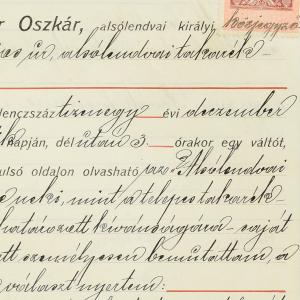 r Oszkár, alsólendvai királyi közjegyző
úr, alsólendvai takarék-
lenczszáz tizenegy évi deczember
napján, dél után 3. órakor egy váltót,
ulsó oldalon olvasható „Alsólendvai
neki, mint a telepes takarék-
határozott kivánságára - saját
tt személyesen bemutattam, a
választ nyertem: